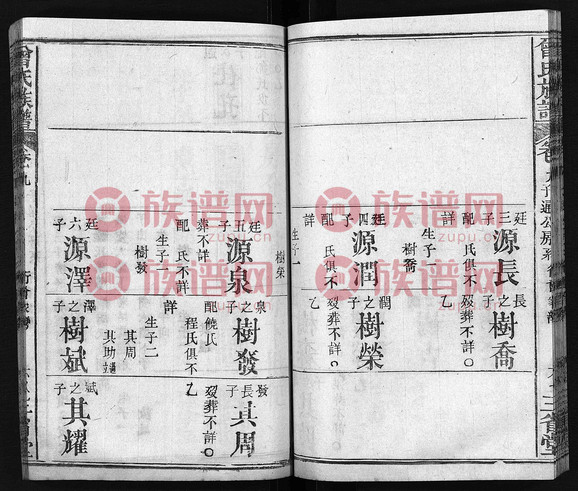 曾氏族譜
廷三子
源長
配氏俱不詳
生子一
樹喬
長之子
樹喬
歿葬不詳〇
廷四子
源潤
配氏俱不詳
生子一
樹榮
潤之子
樹榮
歿葬不詳〇
乙
曾氏族譜
廷五子
源泉
葬不詳
配氏不詳
生子一
樹發
泉之子
樹發
配饒氏
程氏俱不詳
生子二
其周
其助
發長子
其周
歿葬不詳〇
乙
廷六子
源澤
澤之子
樹斌
斌之子
其耀
族谱网
www.zupu.cn
族谱网
www.zupu.cn